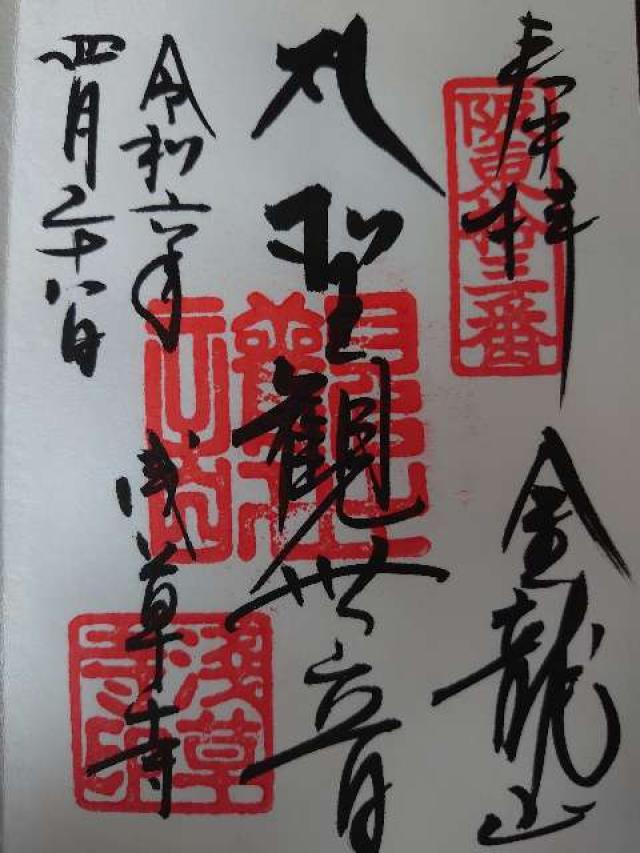 奉拝
阪東拾三番
金龍山
聖観世音
令和六年
四月二十八日
浅草寺
浅草寺印